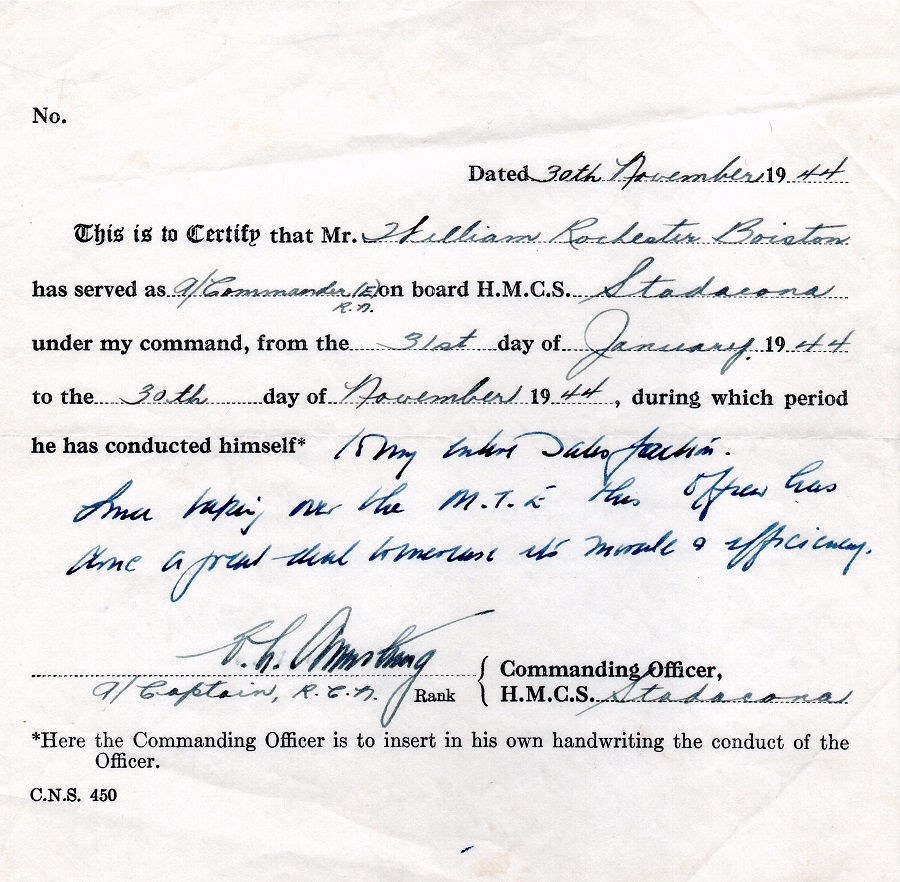 No.
Dated 30th November 1944
This is to Certify that Mr. William Rochester Boiston
has served as A/Commander (E) on board H.M.C.S. Stadacona
R.N.
under my command, from the 31st day of January 1944
to the 30th day of November 1944, during which period
he has conducted himself* to my entire satisfaction.
Since taking over the M.T.E this officer has
done a great deal to increase its morale & efficiency.
Armstrong
A/Captain, R.C.N. Rank { Commanding Officer,
H.M.C.S. Stadacona
*Here the Commanding Officer is to insert in his own handwriting the conduct of the
Officer.
C.N.S. 450